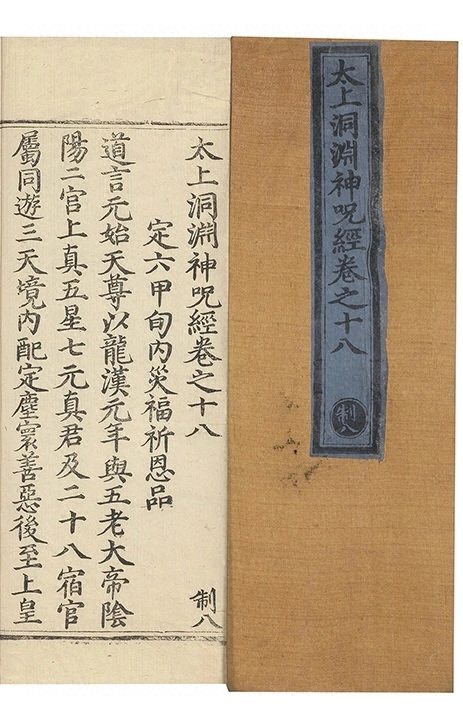 太上洞淵神呪經卷之十八
制八
太上洞淵神呪經卷之十八
制八
定六甲旬内災福祈恩品
道言元始天尊以龍漢元年與五老大帝陰
陽二官上真五星七元真君及二十八宿官
屬同遊三天境内配定塵寰善惡後至上皇